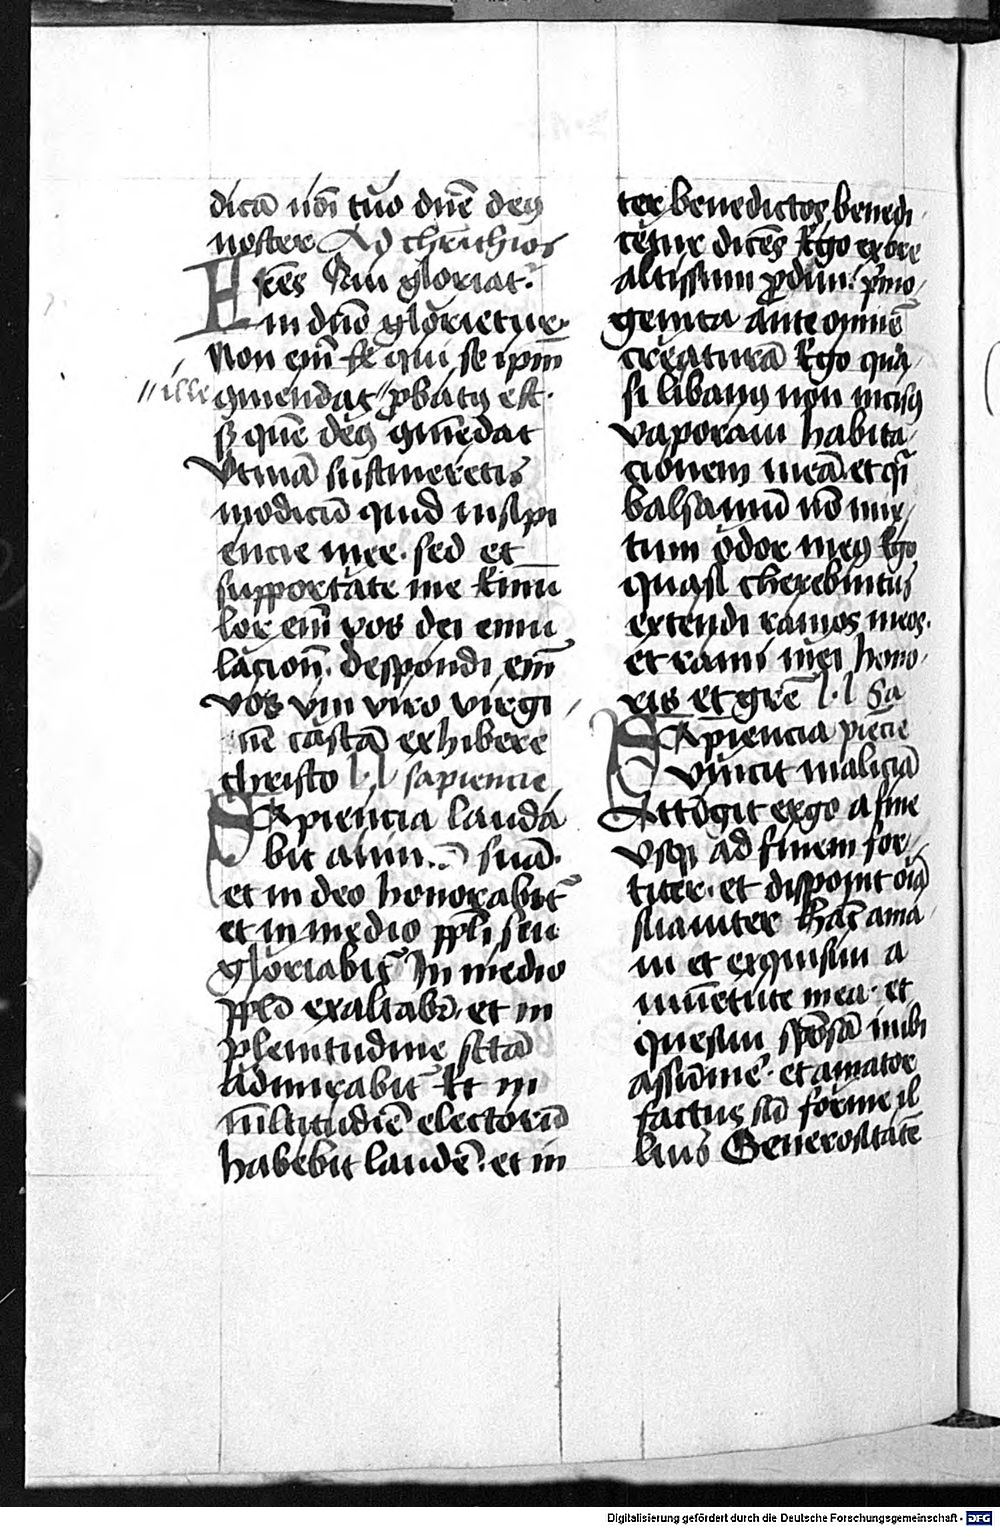 dicā nōi tuo dn̄e deꝰ
noster Ad chorinthios
FRēs Qui gloriat᷑
in dn̄o glorietur
Non eīm se qui se ip̄m
ꝯmendat ꝓbatꝰ est
// ille
sꝫ quē deꝰ ꝯmēdat
Vtinā sustineretis
modicū quid insipi
encie mee. sed et
supportate me Emu
lor eīm vos dei emu
lacion̄. despondi eīm
vos vni viro virgi
nē castā exhibere
christo l l sapiencie
SApiencia lauda
bit anim̄ā suā.
et in deo honorabit᷑
et in medio pp̄li sui
gloriabit᷑ In medio
pp̄lo exaltab᷑. et in
plenitudine sctā
admirabit᷑ Et in
m̄ltitudīe electorū
habebit laudē. et in
ter benedictos benedi
cetur dicēs Ego ex ore
altissimi ꝓdiui. p̄mo
genita ante omnē
creaturā Ego qua
si libanꝰ non incisꝰ
vaporaui habita
cionem meā et q̄i
balsamū nō mix
tum odor meꝰ Ego
quasi therebintus
extendi ramos meos.
et rami mei hono
ris et grē l. l Sa
SApiencia piēcie
vincit maliciā
Attīgit ergo a fine
vsqꝫ ad finem for
titer. et disponit oīa
suauiter Hāc ama
ui et exquisiui a
iuuētute mea. et
quesiui spōsā michi
assumē. et amator
factus sū forme il
lius Generositatē
Digitalisierung gefördert durch die Deutsche Forschungsgemeinschaft - DFG